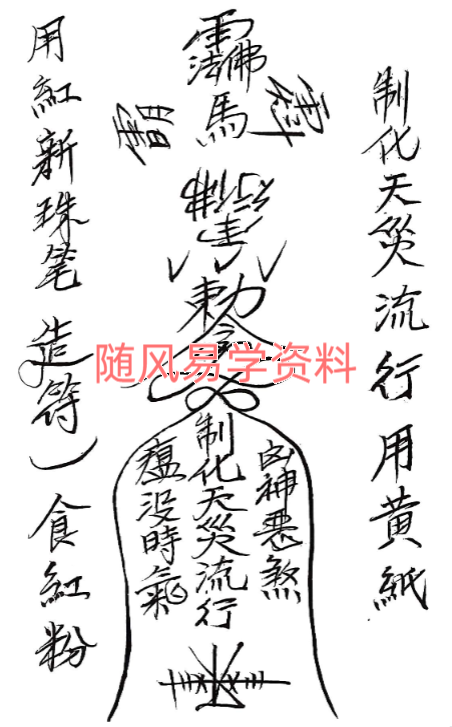 制化天災流行用黄紙
佛法
馬
勅令
随风易学资料
凶神惡煞
制化天災流行
瘟没時氣
用紅新珠笔造符）食紅粉